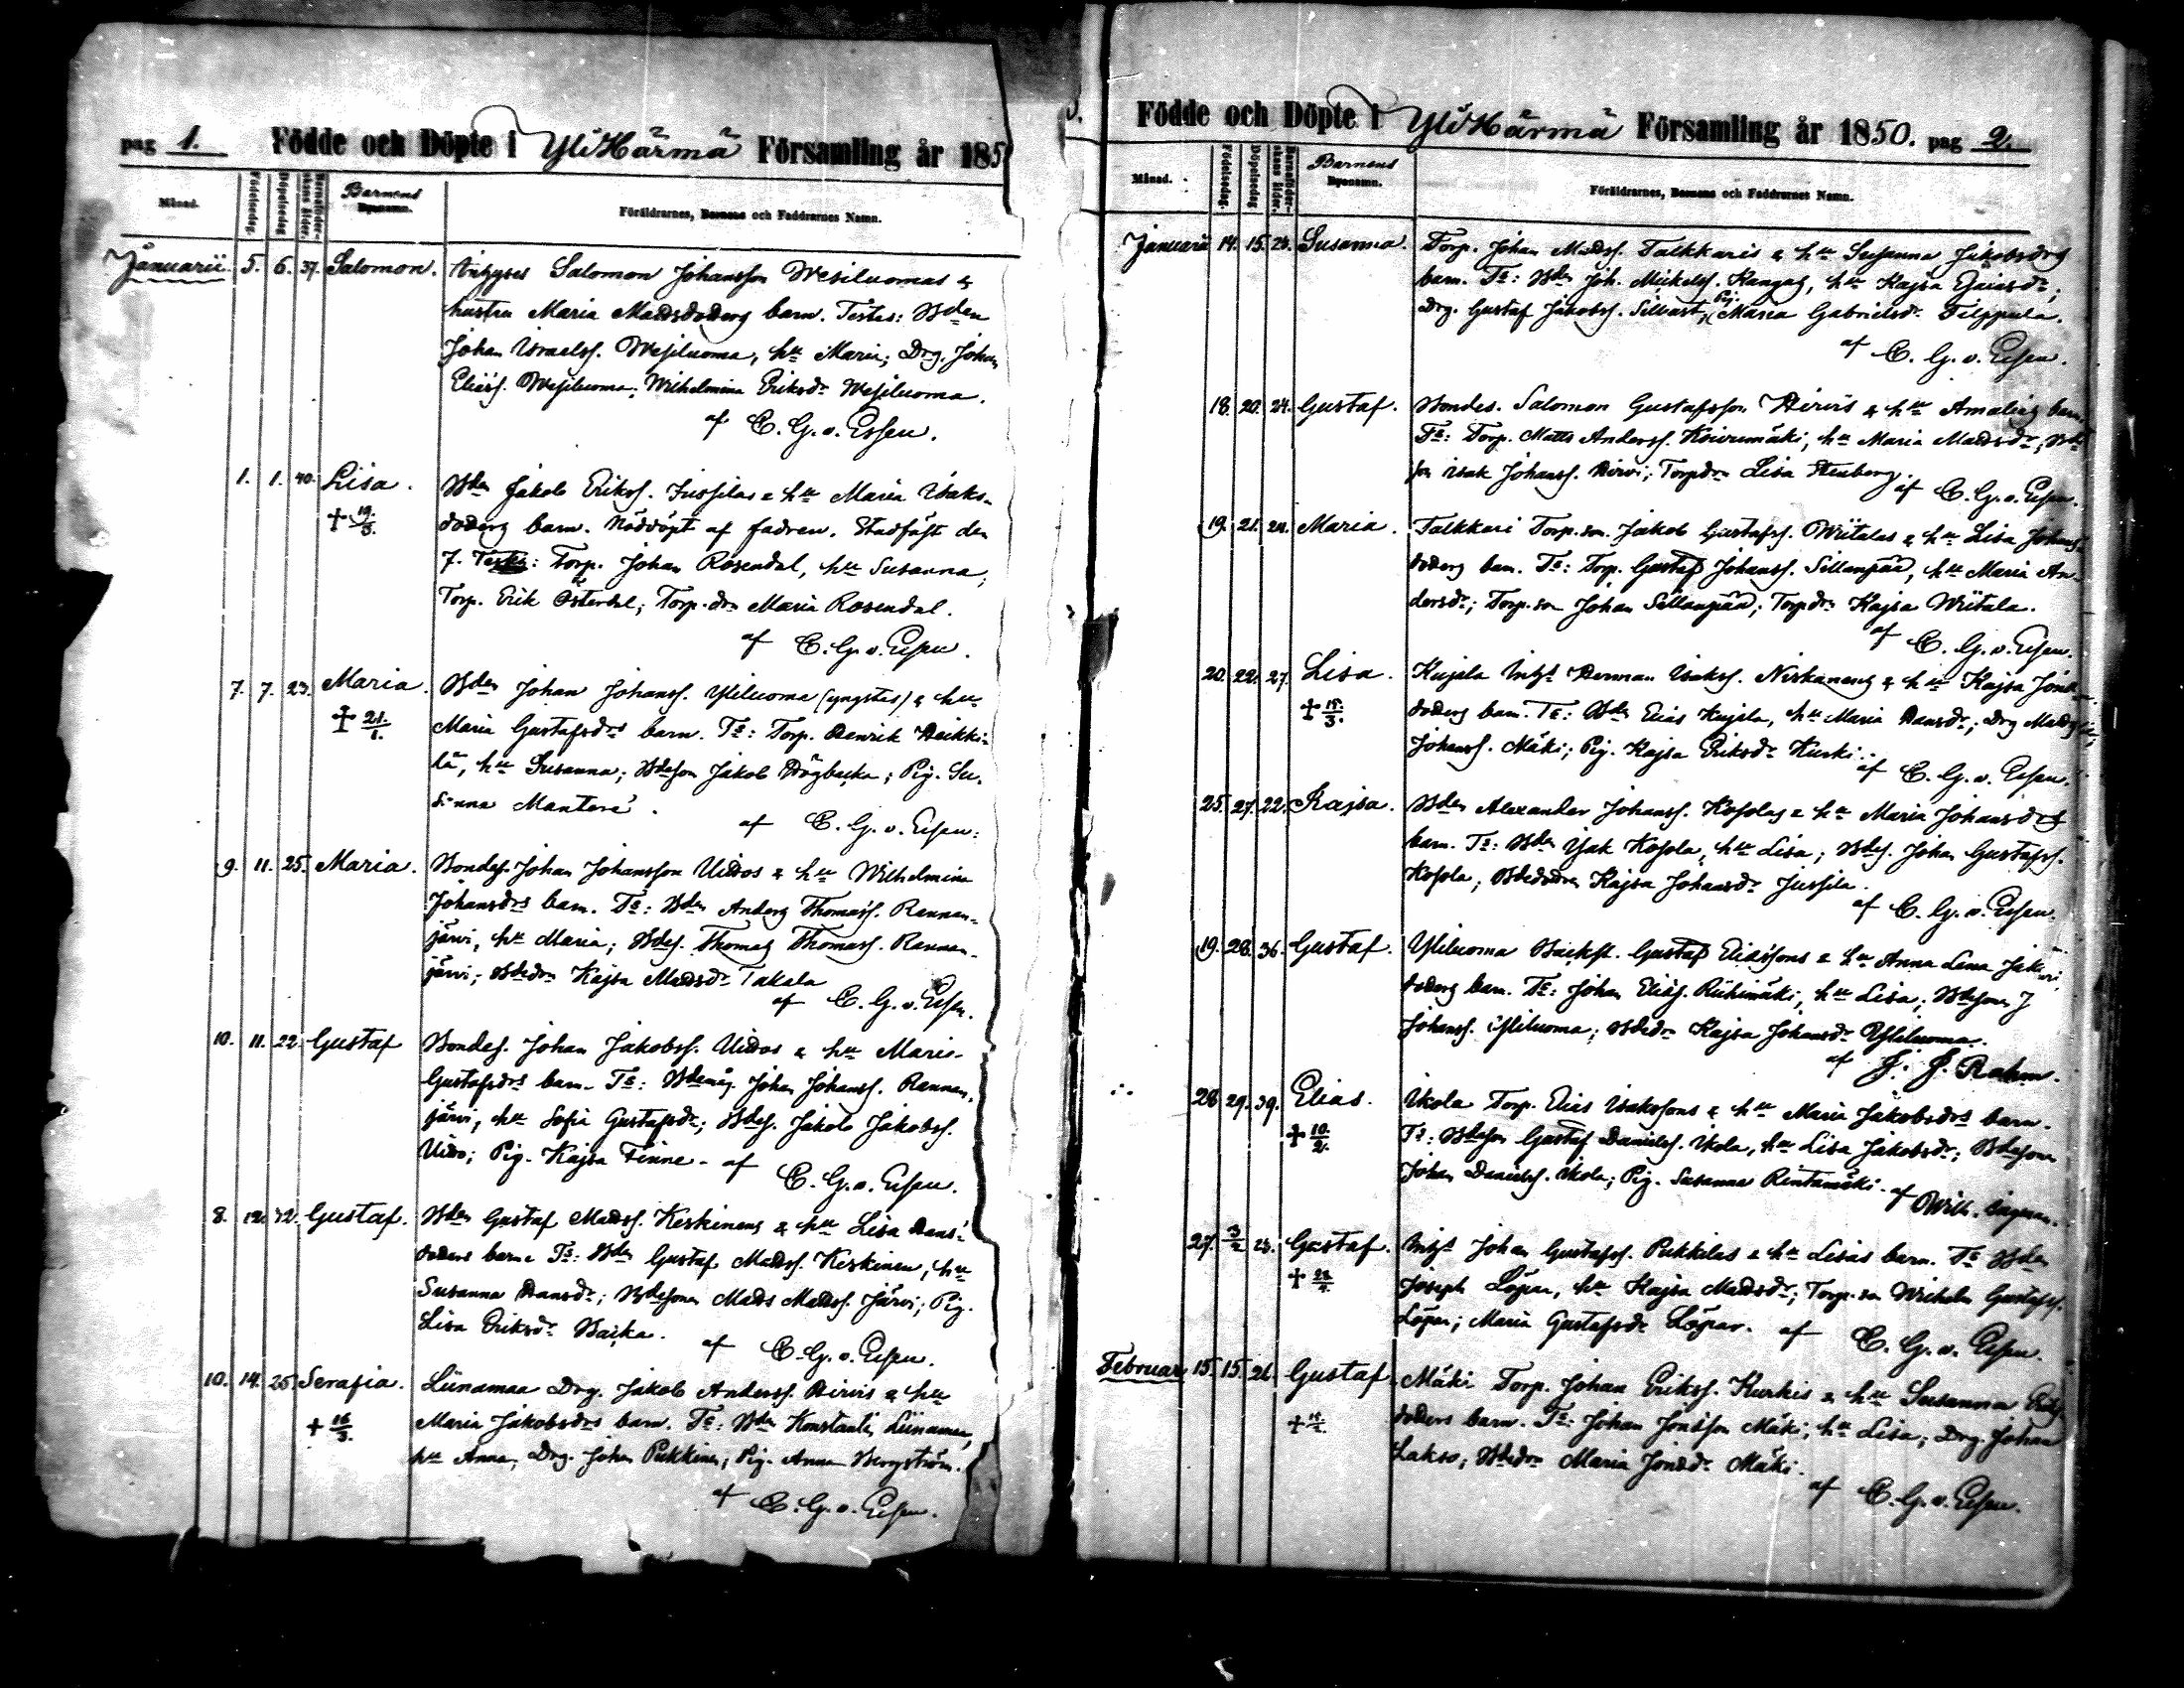 pag 1. Födde och Döpte i YliHärmä Församling år 185
Månad. Födelsedag. Döpelsedag Barnaföderskans ålder. Barnens Byanamn. Föräldrarnes, Barnens och Faddrarnes Namn.
Januarii 5. 6. 37. Salomon. Inhyses Salomon Johansson Wesiluomas &
hustru Maria Mattsdotters barn. Testes: Bden
Johan Israelss. Wesiluoma, hu Maria; Drg. Johan
Eliass. Wesiluoma; Wilhelmina Eriksdr Wesiluoma.
af C. G. v. Essen.
1. 1. 40. Lisa. Bden Jakob Erikss. Jussilas & hu Maria Isaks-
+ 19/3. dotters barn. Nöddöpt af fadren. Stadfäst den
7. Testes: Torp. Johan Rosendal, hu Susanna;
Torp. Erik Österdal; Torp.dr Maria Rosendal.
af C. G. v. Essen.
7. 7. 23. Maria. Bden Johan Johanss. Yliluoma (yngstes) & hu
+ 21/1. Maria Gustafsdrs barn. Ts: Torp. Henrik Heikki-
lä, hu Susanna; Bdeson Jakob Högbacka; Pig. Su-
sanna Manterä.
af C. G. v. Essen.
9. 11. 25. Maria. Bondes. Johan Johansson Uittos & hu Wilhelmina
Johansdrs barn. Ts: Bden Anders Thomass. Rannan-
järvi, hu Maria; Bdes. Thomas Thomass. Rannan-
järvi; Bdedr Kajsa Mattsdr Takala
af C. G. v. Essen.
10. 11. 22. Gustaf Bondes. Johan Jakobss. Uittos & hu Maria
Gustafsdrs barn. Ts: Bdemåg Johan Johanss. Rannan-
järvi, hu Sofia Gustafsdr; Bdes. Jakob Jakobss.
Uitto; Pig. Kajsa Finne. af C. G. v. Essen.
8. 12. 32. Gustaf. Bden Gustaf Mattss. Keskinens & hu Lisa Hans-
dotters barn. Ts: Bden Gustaf Mattss. Keskinen, hu
Susanna Hansdr; Bdesonen Matts Mattss. Järvi; Pig.
Lisa Eriksdr Backa. af C. G. v. Essen.
10. 14. 25. Serafia. Liinamaa Drg. Jakob Anderss. Hirvis & hu
+ 16/3. Maria Jakobsdrs barn. Ts: Bden Konstantin Liinamaa,
hu Anna; Drg. Johan Pukkinen; Pig. Anna Bergström.
af C. G. v. Essen.
Födde och Döpte i YliHärmä Församling år 1850. pag 2.
Månad. Födelsedag. Döpelsedag Barnaföderskans ålder. Barnens Byanamn. Föräldrarnes, Barnens och Faddrarnes Namn.
Januarii 14. 15. 23. Susanna. Torp. Johan Mattss. Talkkaris & hu Susanna Jakobsdrs
barn. Ts: Bden Joh. Mickelss. Kangas, hu Kajsa Esaiasdr;
Drg. Gustaf Jakobss. Silfvast; Pig. Maria Gabrielsdr Filppula.
af C. G. v. Essen.
18. 20. 24. Gustaf. Bondes. Salomon Gustafsson Hirvis & hu Amalias barn
Ts: Torp. Matts Anderss. Koivumäki, hu Maria Mattsdr; Bde
son Isak Johanss. Hirvi; Torpdr Lisa Stenberg.
af C. G. v. Essen.
19. 21. 24. Maria. Talkkari Torp.son. Jakob Gustafss. Wiitalas & hu Lisa Johans
dotters barn. Ts: Torp. Gustaf Johanss. Sillanpää, hu Maria An-
dersdr; Torp.son Johan Sillanpää; Torpdr Kajsa Wiitala.
af C. G. v. Essen.
20. 22. 27. Lisa. Kujala Inhs Herman Isakss. Niskanens & hu Kajsa
+ 15/3. dotters barn. Ts: Bden Elias Kujala, hu Maria Hansdr; Drg Matts
Johanss. Mäki; Pig. Kajsa Eriksdr Kurki.
af C. G. v. Essen.
25. 27. 22. Kajsa. Bden Alexander Johanss. Kosolas & hu Maria Johansdrs
barn. Ts: Bden Isak Kosola, hu Lisa; Bdes. Johan Gustafss.
Kosola; Bdedotren Kajsa Johansdr Jussila.
af C. G. v. Essen.
19. 28. 36. Gustaf. Yliluoma Backst. Gustaf Eliassons & hu Anna Lena Jak
dotters barn. Ts: Johan Eliass. Riihimäki, hu Lisa; Bdesonen J
Johanss. Yliluoma; Bdedr Kajsa Johansdr Yliluoma.
af J. J. Rahm.
28 29. 39. Elias. Ikola Torp. Elias Isakssons & hu Maria Jakobsdrs barn.
+ 10/2. Ts: Bdeson Gustaf Danielss. Ikola, hu Lisa Jakobsdr; Bdesonen
Johan Danielss. Ikola; Pig. Susanna Rintamäki. af Wilh.
27. 3/2 23. Gustaf. Inhs Johan Gustafss. Pukkilas & hu Lisas barn. Ts Bden
+ 28/4. Joseph Löpar, hu Kajsa Mattsdr; Torp.son Wilhelm Gustafss.
Löpar; Maria Gustafsdr Löpar. af C. G. v. Essen.
Februar. 15. 15. 26. Gustaf. Mäki Torp. Johan Erikss. Kurkis & hu Susanna
dotters barn. Ts: Johan Jonasson Mäki, hu Lisa; Drg. Johan
Lakso; Bdedr Maria Jonasdr Mäki.
af C. G. v. Essen.